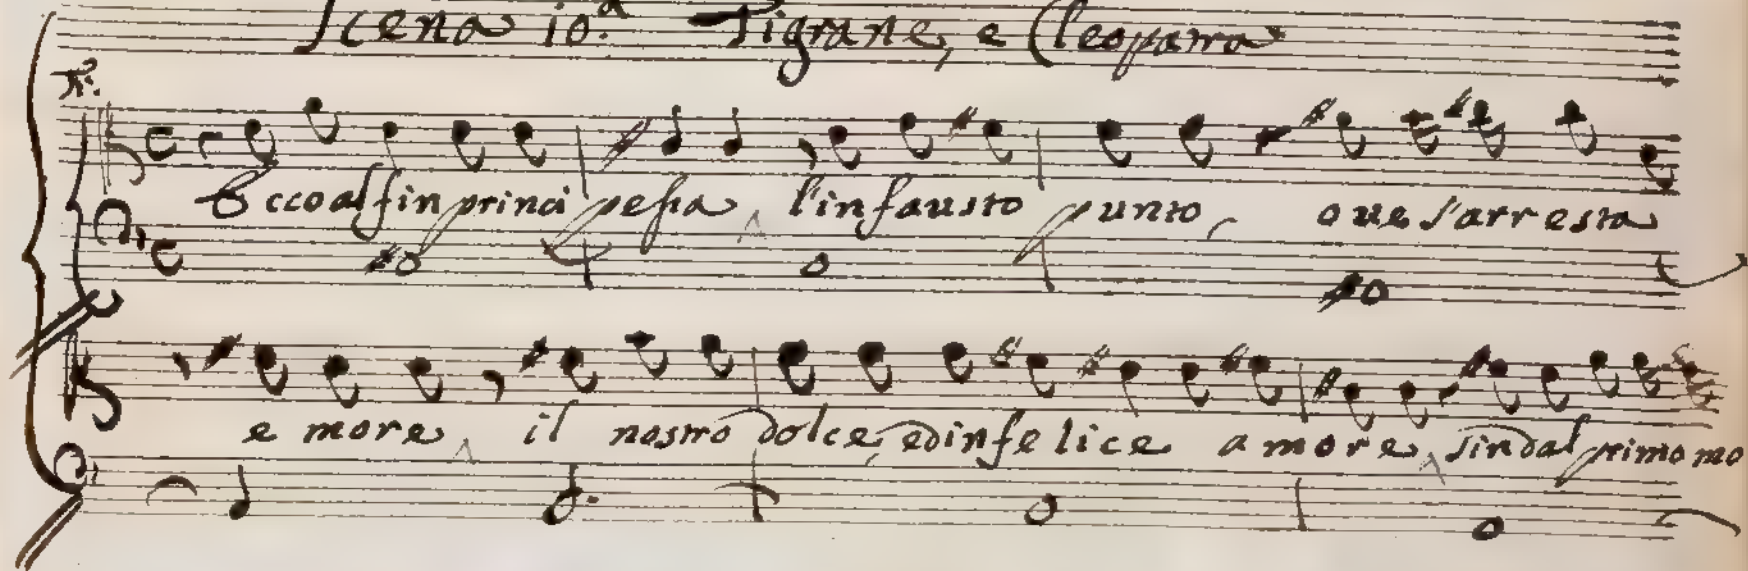 Scena 10.a Tigrane, e Cleopatra
Ecco al fin principessa l'infausto punto, oue s'arresta
e more, il nostro dolce, ed infelice amore, sin dal primo mo